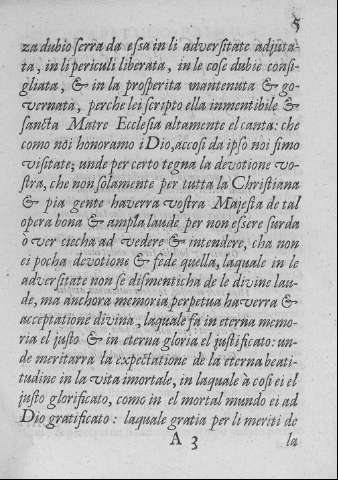 5
za dubio serra da essa in li adversitate adjuta-
ta, in li periculi liberata, in le cose dubie consi-
gliata, & in la prosperita mantenuta & go-
vernata, perche lei scripto ella inmentibile &
sancta Matre Ecclesia altamente el canta: che
como noi honoramo i Dio, accosi da ipso noi simo
visitate; unde per certo tegna la devotione vo-
stra, che non solamente per tutta la Christiana
& pia gente haverra vostra Majesta de tal
opera bona & ampla laude per non essere surda
o ver ciecha ad vedere & intendere, cha non
ei pocha devotione & fede quella, laquale in le
adversitate non se dismenticha de le divine lau-
de, ma anchora memoria perpetua haverra &
acceptatione divina, laquale fa in eterna memo-
ria el justo & in eterna gloria el justificato: un-
de meritarra la expectatione de la eterna beati-
tudine in la vita imortale, in laquale à cosi ei el
justo glorificato, como in el mortal mundo ei ad
Dio gratificato: laquale gratia per li meriti de
A 3 la